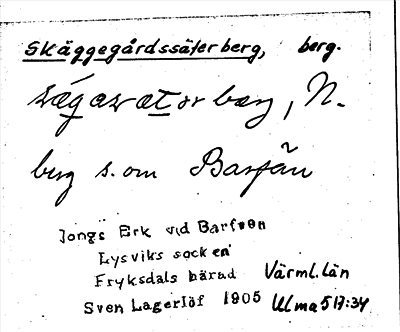 Skäggegårdssäterberg, berg.
berg s. om Barfän
Jongs Erk vid Barfven
Lysviks socken
Fryksdals härad Värml. län
Sven Lagerlöf 1905 Ulma 517:34